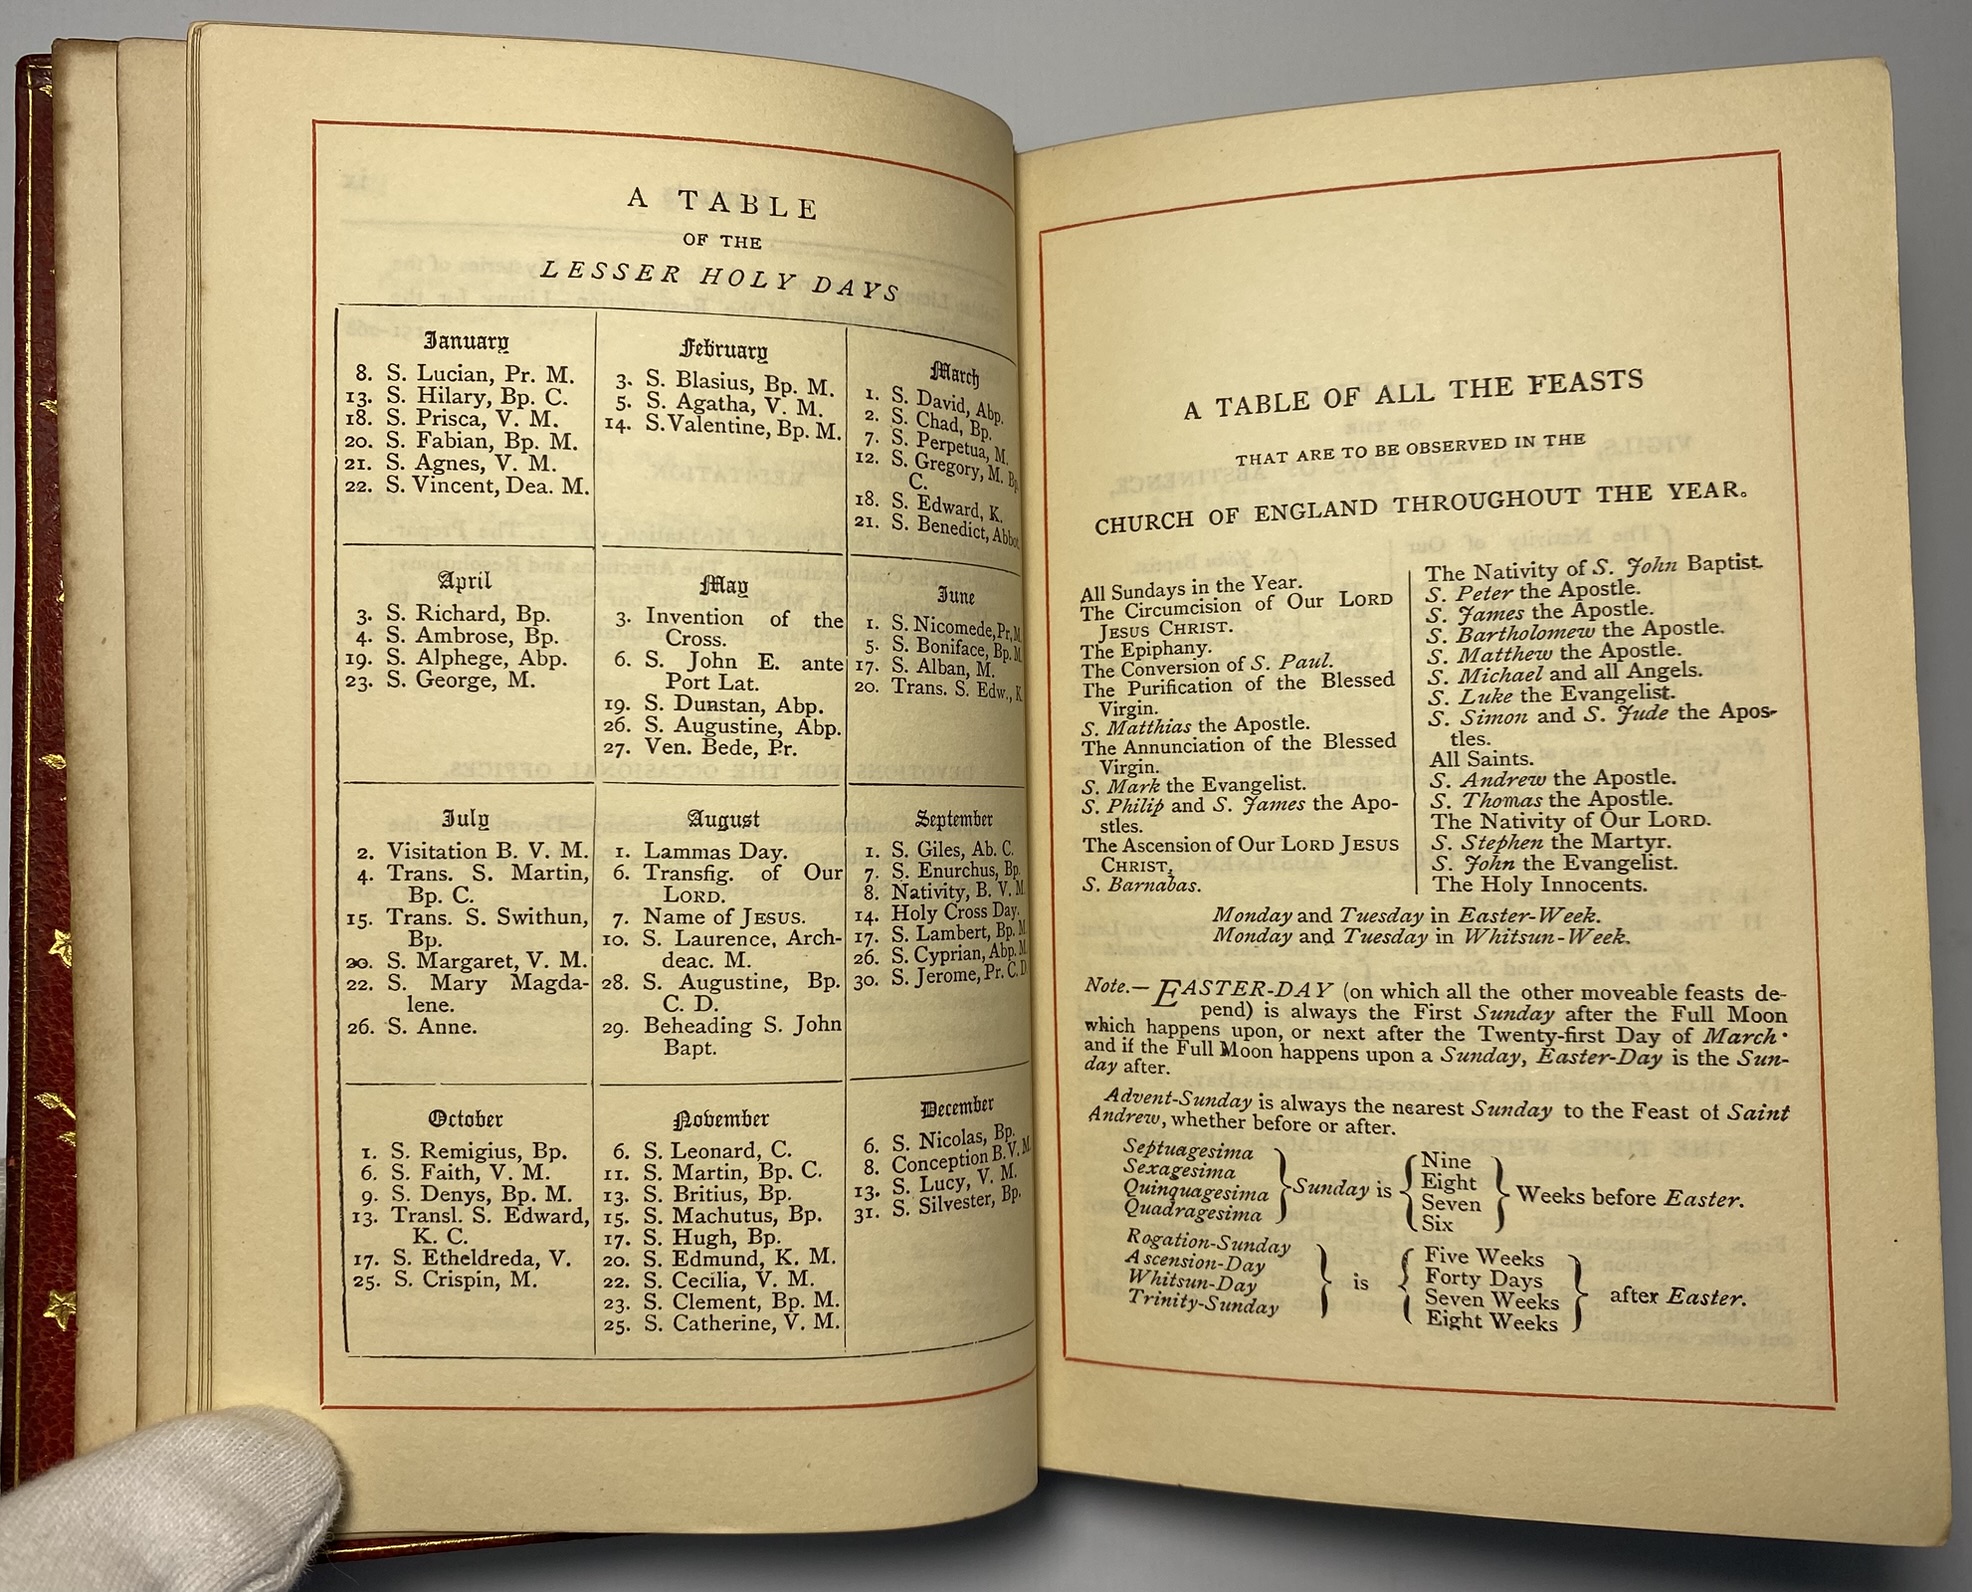 A TABLE
OF THE
LESSER HOLY DAYS
January
8. S. Lucian, Pr. M.
13. S. Hilary, Bp. C.
18. S. Prisca, V. M.
20. S. Fabian, Bp. M.
21. S. Agnes, V. M.
22. S. Vincent, Dea. M.
February
3. S. Blasius, Bp. M.
5. S. Agatha, V. M.
14. S. Valentine, Bp. M.
March
1. S. David, Abp.
2. S. Chad, Bp.
7. S. Perpetua, M.
12. S. Gregory, M. Bp.
C.
18. S. Edward, K.
21. S. Benedict, Abbot.
April
3. S. Richard, Bp.
4. S. Ambrose, Bp.
19. S. Alphege, Abp.
23. S. George, M.
May
3. Invention of the
Cross.
6. S. John E. ante
Port Lat.
19. S. Dunstan, Abp.
26. S. Augustine, Abp.
27. Ven. Bede, Pr.
June
1. S. Nicomede, Pr. M.
5. S. Boniface, Bp. M.
17. S. Alban, M.
20. Trans. S. Edw., K.
July
2. Visitation B. V. M.
4. Trans. S. Martin,
Bp. C.
15. Trans. S. Swithun,
Bp.
20. S. Margaret, V. M.
22. S. Mary Magda-
lene.
26. S. Anne.
August
1. Lammas Day.
6. Transfig. of Our
LORD.
7. Name of JESUS.
10. S. Laurence, Arch-
deac. M.
28. S. Augustine, Bp.
C. D.
29. Beheading S. John
Bapt.
September
1. S. Giles, Ab. C.
7. S. Enurchus, Bp.
8. Nativity, B. V. M.
14. Holy Cross Day.
17. S. Lambert, Bp. M.
26. S. Cyprian, Abp. M.
30. S. Jerome, Pr. C. D.
October
1. S. Remigius, Bp.
6. S. Faith, V. M.
9. S. Denys, Bp. M.
13. Transl. S. Edward,
K. C.
17. S. Etheldreda, V.
25. S. Crispin, M.
November
6. S. Leonard, C.
11. S. Martin, Bp. C.
13. S. Britius, Bp.
15. S. Machutus, Bp.
17. S. Hugh, Bp.
20. S. Edmund, K. M.
22. S. Cecilia, V. M.
23. S. Clement, Bp. M.
25. S. Catherine, V. M.
December
6. S. Nicolas, Bp.
8. Conception B. V. M.
13. S. Lucy, V. M.
31. S. Silvester, Bp.
A TABLE OF ALL THE FEASTS
THAT ARE TO BE OBSERVED IN THE
CHURCH OF ENGLAND THROUGHOUT THE YEAR.
All Sundays in the Year.
The Circumcision of Our LORD
JESUS CHRIST.
The Epiphany.
The Conversion of S. Paul.
The Purification of the Blessed
Virgin.
S. Matthias the Apostle.
The Annunciation of the Blessed
Virgin.
S. Mark the Evangelist.
S. Philip and S. James the Apo-
stles.
The Ascension of Our LORD JESUS
CHRIST,
S. Barnabas.
The Nativity of S. John Baptist.
S. Peter the Apostle.
S. James the Apostle.
S. Bartholomew the Apostle.
S. Matthew the Apostle.
S. Michael and all Angels.
S. Luke the Evangelist.
S. Simon and S. Jude the Apos-
tles.
All Saints.
S. Andrew the Apostle.
S. Thomas the Apostle.
The Nativity of Our LORD.
S. Stephen the Martyr.
S. John the Evangelist.
The Holy Innocents.
Monday and Tuesday in Easter-Week.
Monday and Tuesday in Whitsun-Week.
Note.—EASTER-DAY (on which all the other moveable feasts de-
pend) is always the First Sunday after the Full Moon
which happens upon, or next after the Twenty-first Day of March·
and if the Full Moon happens upon a Sunday, Easter-Day is the Sun-
day after.
Advent-Sunday is always the nearest Sunday to the Feast of Saint
Andrew, whether before or after.
Septuagesima
Sexagesima
Quinquagesima
Quadragesima
Sunday is
Nine
Eight
Seven
Six
Weeks before Easter.
Rogation-Sunday
Ascension-Day
Whitsun-Day
Trinity-Sunday
is
Five Weeks
Forty Days
Seven Weeks
Eight Weeks
after Easter.